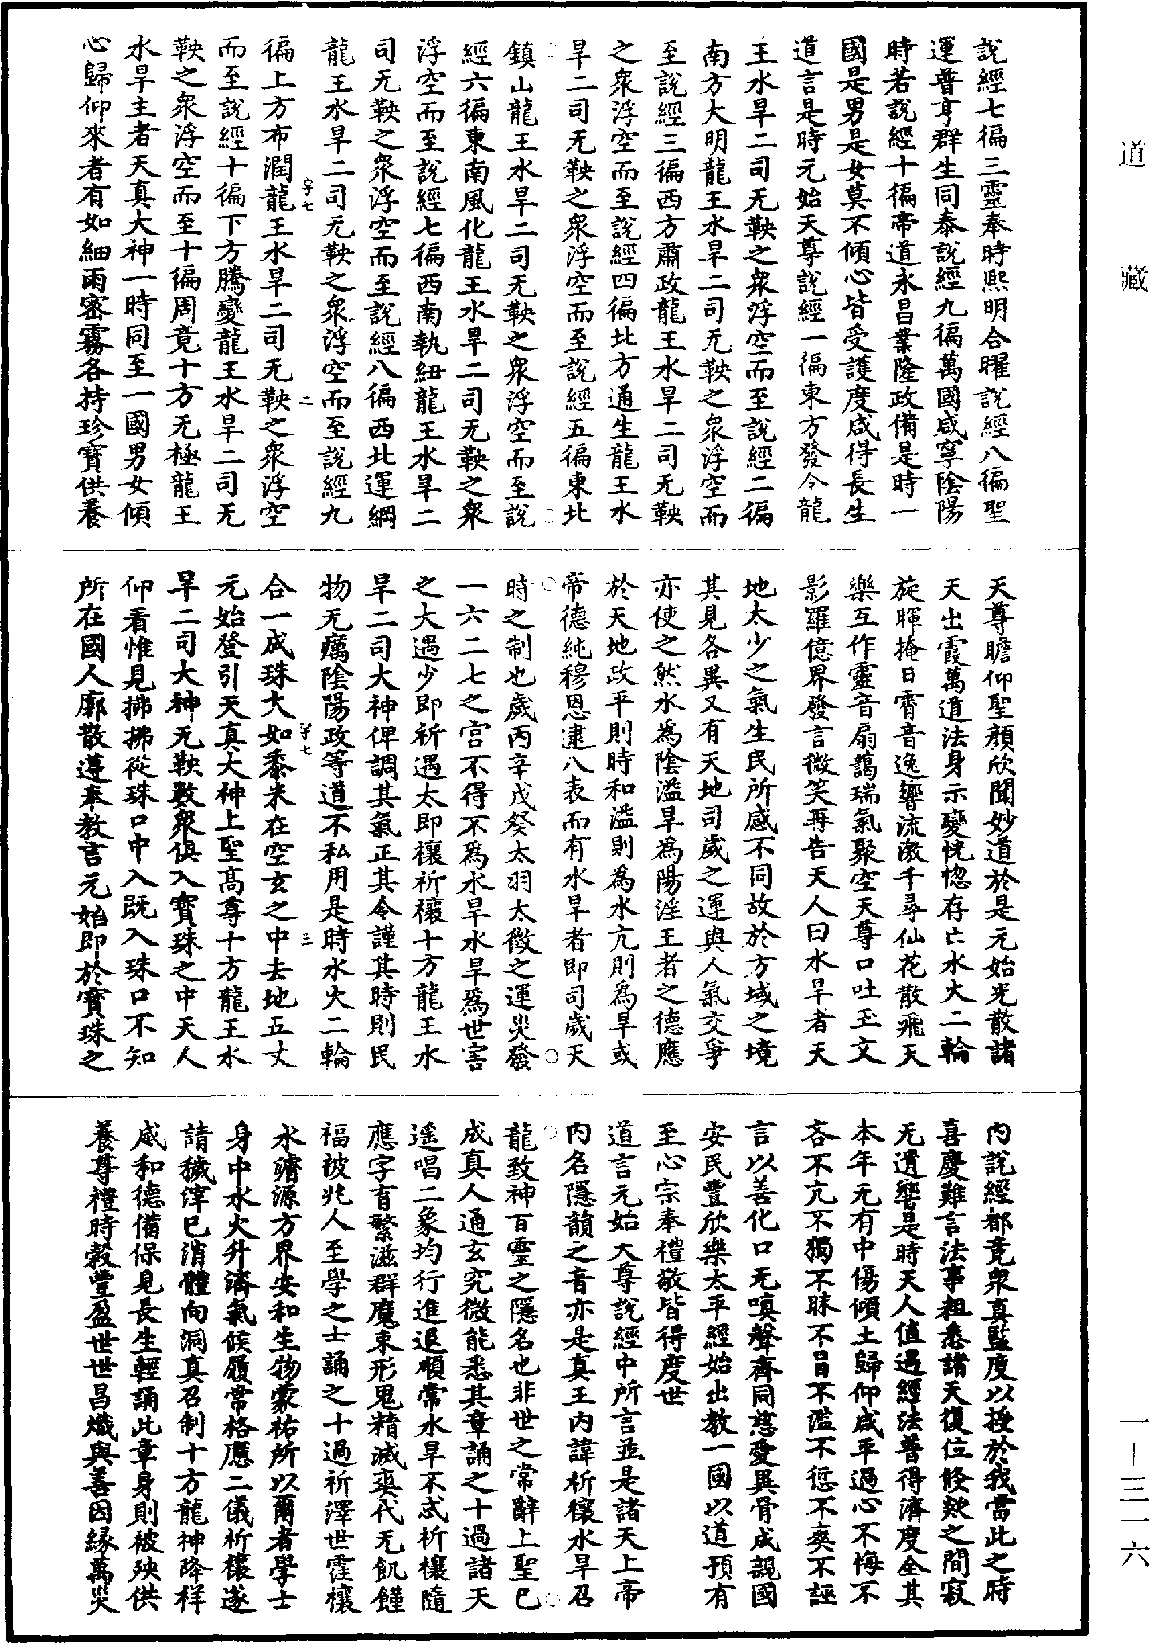 道藏
說經七徧三靈奉時熙明合曜說經八徧聖
運普亨群生同泰說經九徧萬國咸寧陰陽
時若說經十徧帝道永昌業隆政備是時一
國是男是女莫不傾心皆受護度咸得長生
道言是時元始天尊說經一徧東方發令龍
王水旱二司无鞅之衆浮空而至說經二徧
南方大明龍王水旱二司无鞅之衆浮空而
至說經三徧西方肅政龍王水旱二司无鞅
之衆浮空而至說經四徧北方通生龍王水
旱二司无鞅之衆浮空而至說經五徧東北
鎮山龍王水旱二司无鞅之衆浮空而至說
經六徧東南風化龍王水旱二司无鞅之衆
浮空而至說經七徧西南執紐龍王水旱二
司无鞅之衆浮空而至說經八徧西北運綱
龍王水旱二司无鞅之衆浮空而至說經九
字七 二
徧上方布潤龍王水旱二司无鞅之衆浮空
而至說經十徧下方騰變龍王水旱二司无
鞅之衆浮空而至十徧周竟十方无極龍王
水旱主者天真大神一時同至一國男女傾
心歸仰來者有如細雨密霧各持珍寶供養
天尊瞻仰聖顏欣聞妙道於是元始光散諸
天出霞萬道法身示變恍惚存亡水火二輪
旋暉掩日霄音逸響流激千尋仙花散飛天
樂互作靈音扇藹瑞氣聚空天尊口吐玉文
影羅億界發言微笑再告天人曰水旱者天
地太少之氣生民所感不同故於方域之境
其見各異又有天地司歲之運與人氣交爭
亦使之然水為陰溢旱為陽淫王者之德應
於天地政平則時和溢則為水亢則為旱或
帝德純穆恩逮八表而有水旱者即司歲天
時之制也歲丙辛戊癸太羽太徵之運災發
一六二七之宮不得不爲水旱水旱爲世害
之大過少即祈過太即禳祈禳十方龍王水
旱二司大神俾調其氣正其令謹其時則民
物无癘陰陽政等道不私用是時水火二輪
字七 三
合一成珠大如黍米在空玄之中去地五丈
元始登引天真大神上聖高尊十方龍王水
旱二司大神无鞅數衆俱入寶珠之中天人
仰看惟見拂拂從珠口中入既入珠口不知
所在國人廓散遵奉教言元始即於寶珠之
內說經都竟衆真監度以授於我當此之時
喜慶難言法事粗悉諸天復位倐欻之間寂
无遺響是時天人值遇經法普得濟度全其
本年无有中傷傾土歸仰咸平過心不悔不
吝不亢不獨不昧不盲不濫不愆不爽不誣
言以善化口无嗔聲齊同慈愛異骨成親國
安民豐欣樂太平經始出教一國以道預有
至心宗奉禮敬皆得度世
道言元始大尊說經中所言並是諸天上帝
內名隱韻之音亦是真王內諱祈禳水旱召
龍致神百靈之隱名也非世之常辭上聖已
成真人通玄究微能悉其章誦之十過諸天
遥唱二象均行進退順常水旱不忒祈禳隨
應字育繁滋群魔束形鬼精滅爽代无飢饉
福被兆人至學之士誦之十過祈澤世霍禳
水濟源方界安和生物蒙祐所以爾者學士
身中水火升濟氣候履常格應二儀祈禳遂
請穢滓已消體向洞真召制十方龍神降祥
咸和德備保見長生輕誦此章身則被殃供
養尊禮時穀豐盈世世昌熾與善因緣萬災
一—三一六